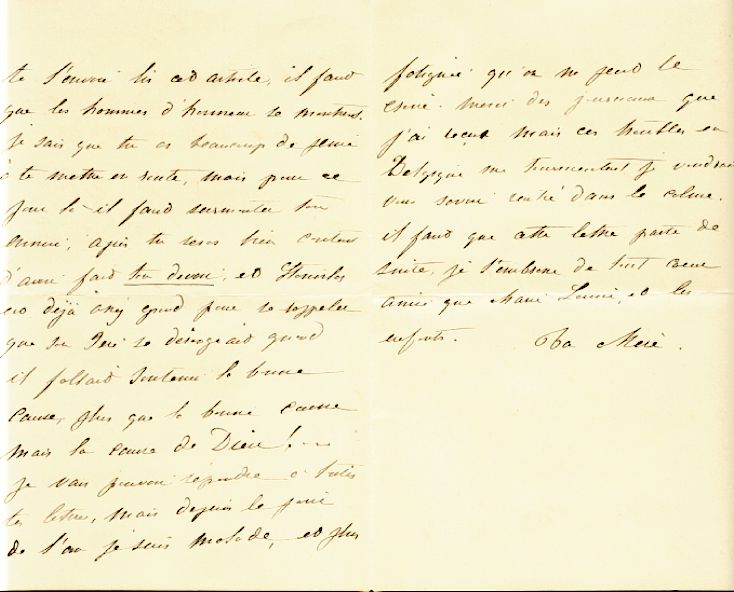 te l'envoi lis cet article, il faut
que les hommes d'honneur se montrent.
je sais que tu as beaucoup de peine
à te mettre en route, mais pour ce
jour là il faud surmonter ton
ennui, après tu seras bien content
d'avoir faid ton devoir, et Stanislas
est déjà assez grand pour se rappeler
que son Père se dérogeait quand
il fallait soutenir la bonne
cause, plus que la bonne cause
mais la cause de Dieu !
je vais pouvoir répondre à toutes
tes lettres, mais depuis le jour
de l'an je suis malade, et plus
fatiguée qu'on ne peud le
croire. merci des journaux que
j'ai reçut mais ces troubles en
Belgique me tourmentent je voudrais
vous savoir rentré dans le calme.
il faud que cette lettre parte de
suite, je t'embrasse de tout coeur
ainsi que Marie Louise, et les
enfants. Ta Mère.